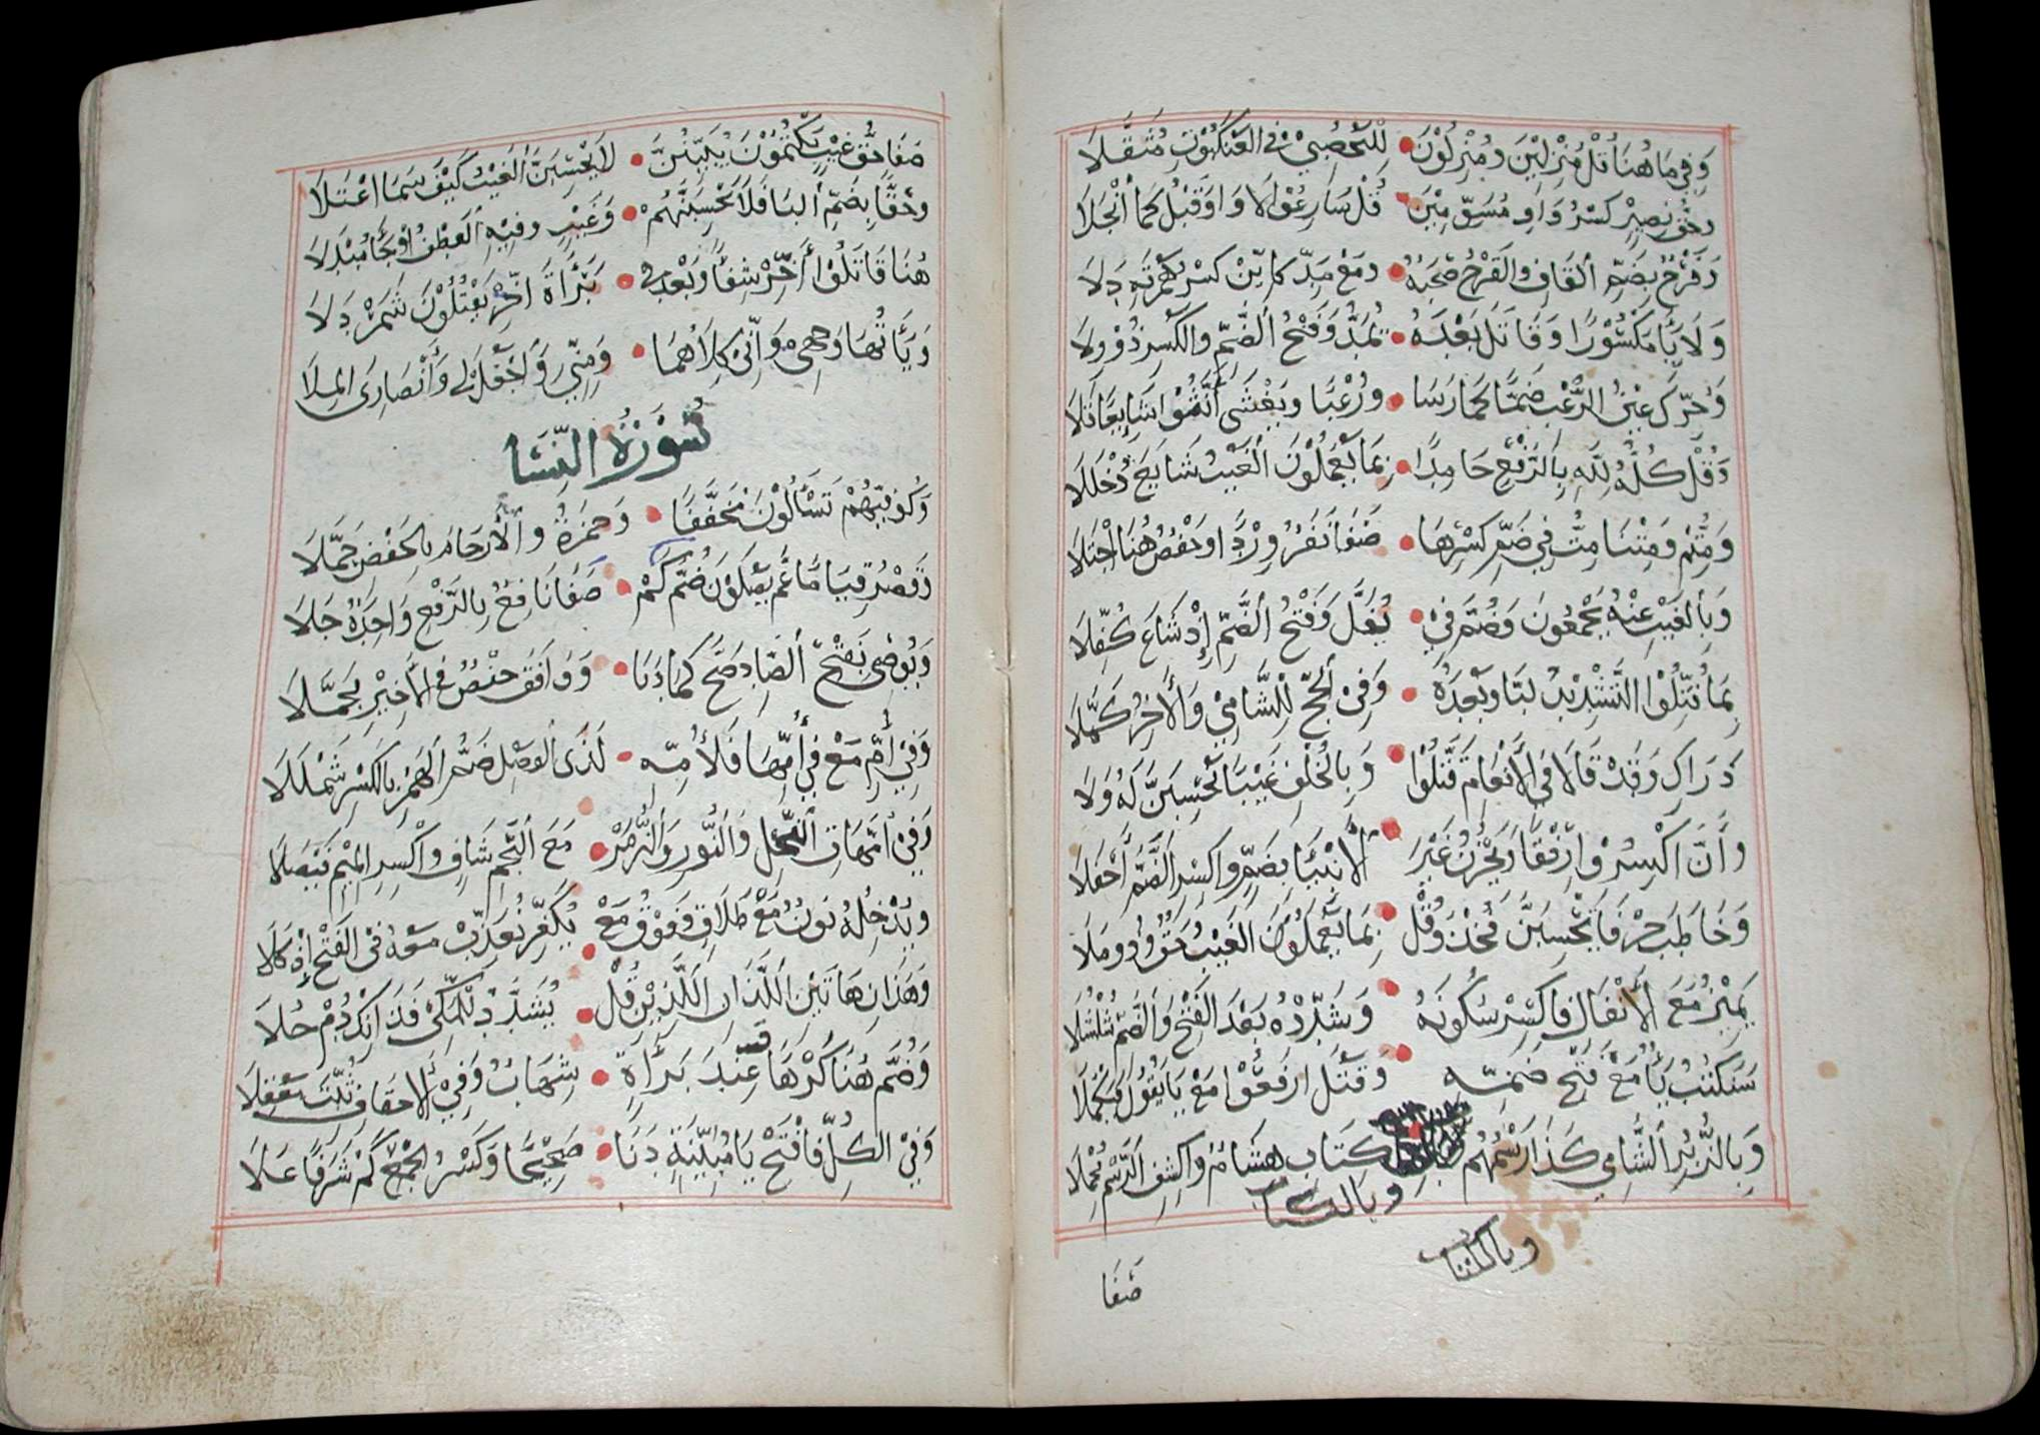 وَفِي مَا هُنَا قُلْ مُنْزِلِيْنَ وَمُنْزِلُوْنَ • لِلْيَحْصُبِيْ فِي الْعَنْكَبُوْتِ مُثَقَّلَا
وَحَقُّ نَصِيْرٍ كَسْرُ وَاوِ مُسَوِّمِيْنَ • قُلْ سَارِعُوْا لَا وَاوَ قَبْلُ كَمَا انْجَلَا
وَقَرْحٌ بِضَمِّ الْقَافِ وَالْقَرْحُ صُحْبَةٌ • وَمَعْ مَدِّ كَائِنْ كَسْرُ هَمْزَتِهِ دَلَا
وَلَا يَاءَ مَكْسُوْرًا وَقَاتَلَ بَعْدَهُ • يُمَدُّ وَفَتْحُ الضَّمِّ وَالْكَسْرِ ذُوْ وِلَا
وَحُرِّكَ عَيْنُ الرُّعْبِ ضَمًّا كَمَا رَسَا • وَرُعْبًا وَيَغْشَى أَنَّثُوْا شَائِعًا تَلَا
وَقُلْ كُلُّهُ لِلَّهِ بِالرَّفْعِ حَامِدًا • بِمَا يَعْمَلُوْنَ الْغَيْبُ شَايَعَ دُخْلَلَا
وَمُتُّمْ وَمِتْنَا مِتُّ فِي ضَمِّ كَسْرِهَا • صَفَا نَفَرٌ وِرْدًا وَحَفْصٌ هُنَا اجْتَلَا
وَبِالْغَيْبِ عَنْهُ يَجْمَعُوْنَ وَضُمَّ فِيْ • يَغُلَّ وَفَتْحُ الضَّمِّ إِذْ شَاعَ كُفِّلَا
بِمَا قُتِّلُوْا التَّشْدِيْدُ لَبَّا وَبَعْدَهُ • وَفِي الْحَجِّ لِلشَّامِيْ وَالْآخِرُ كَمَّلَا
دَرَاكِ وَقَدْ قَالَا فِي الْأَنْعَامِ قَتَّلُوْا • وَبِالْخُلْفِ غَيْبًا يَحْسَبَنَّ لَهُ وَلَا
وَأَنَّ اكْسِرُوْا رِفْقًا وَيَحْزُنُ غَيْرَ • الْأَنْبِيَا بِضَمٍّ وَاكْسِرِ الضَّمَّ أَحْفَلَا
وَخَاطَبَ حَرْفَا يَحْسَبَنَّ فَخُذْ وَقُلْ • بِمَا يَعْمَلُوْنَ الْغَيْبُ حَقٌّ وَذُوْ مَلَا
يَمِيْزَ مَعَ الْأَنْفَالِ فَاكْسِرْ سُكُوْنَهُ • وَشَدِّدْهُ بَعْدَ الْفَتْحِ وَالضَّمِّ شُلْشُلَا
سَنَكْتُبُ يَاءٌ مَعَ فَتْحِ ضَمِّهِ • وَقَتْلَ ارْفَعُوْا مَعْ يَا يَقُوْلُ فَيَكْمُلَا
وَبِالزُّبُرِ الشَّامِي كَذَا رَسْمُهُمْ كِتَابِ هِشَامٌ وَاكْشِفِ الرَّسْمَ مُجْمِلَا
وبالكتاب
وبالكتاب
صَفَا
صَفَا حَقُّ غَيْبٍ يَكْتُمُوْنَ يُبَيِّنُنَّ • لَا يَحْسَبَنَّ الْغَيْبُ كَيْفَ سَمَا اعْتَلَا
وَحَقًّا بِضَمِّ الْبَا فَلَا يَحْسِبُنَّهُمْ • وَغَيْبٌ وَفِيْهِ الْعَطْفُ أَوْ جَاءَ مُبْدَلَا
هُنَا قَاتَلُوْا أَخِّرْ شِفَاءً وَبَعْدُ فِي • بَرَاءَةَ أَخِّرْ يَقْتُلُوْنَ شَمَرْدَلَا
وَيَاءَاتُهَا وَجْهِي وَإِنِّيْ كِلَاهُمَا • وَمِنِّيْ وَاجْعَلْ لِي وَأَنْصَارِيَ الْمِلَا
سُوْرَةُ النِّسَا
وَكُوفِيُّهُمْ تَسَّاءَلُوْنَ مُخَفَّفًا • وَحَمْزَةُ وَالْأَرْحَامِ بِالْخَفْضِ جَمَّلَا
وَقَصْرُ قِيَامًا عَمَّ يَصْلَوْنَ ضُمَّ كَمْ • صَفَا نَافِعٌ بِالرَّفْعِ وَاحِدَةٌ جَلَا
وَيُوْصَى بِفَتْحِ الصَّادِ صَحَّ كَمَا دَنَا • وَوَافَقَ حَفْصٌ فِي الْأَخِيْرِ مُجَمَّلَا
وَفِي أُمِّ مَعْ فِي أُمِّهَا فَلِأُمِّهِ • لَدَى الْوَصْلِ ضَمُّ الْهَمْزِ بِالْكَسْرِ شَمْلَلَا
وَفِي أُمَّهَاتِ النَّحْلِ وَالنُّوْرِ وَالزُّمَرْ • مَعَ النَّجْمِ شَافٍ وَاكْسِرِ الْمِيْمَ فَيْصَلَا
وَيُدْخِلْهُ نُوْنٌ مَعْ طَلَاقٍ وَفَوْقُ مَعْ • يُكَفِّرْ يُعَذِّبْ مَعْهُ فِي الْفَتْحِ إِذْ كَلَا
وَهَذَانِ هَاتَيْنِ اللَّذَانِ اللَّذَيْنِ قُلْ • يُشَدَّدُ لِلْمَكِّيْ فَذَانِكَ دُمْ حُلَا
وَضُمَّ هُنَا كَرْهًا وَعِنْدَ بَرَاءَةٍ • شِهَابٌ وَفِي الْأَحْقَافِ ثُبِّتَ مَعْقِلَا
وَفِي الْكُلِّ فَافْتَحْ يَا مُبَيِّنَةٍ دَنَا • صَحِيْحًا وَكَسْرُ الْجَمْعِ كَمْ شَرَفًا عَلَا